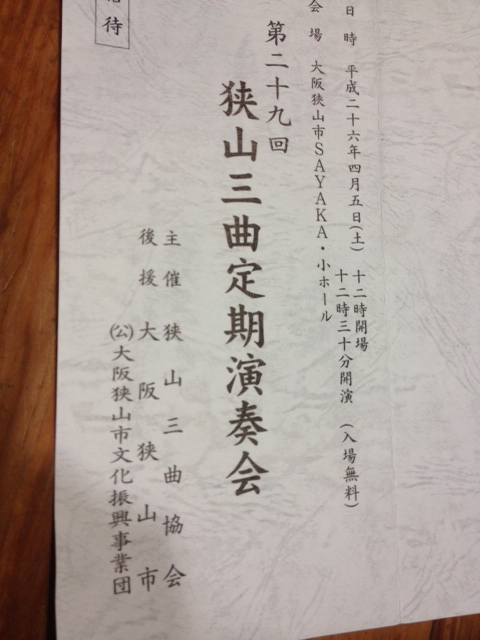 日時 平成二十六年四月五日(土) 十二時開場
十二時三十分開演 (入場無料)
会場 大阪狭山市SAYAKA・小ホール
第二十九回
狭山三曲定期演奏会
主催 狭山三曲協会
後援 大阪狭山市
㈳大阪狭山市文化振興事業団
招待